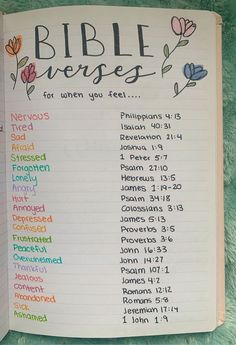 BIBLE
verses
for when you feel....
Nervous Philippians 4:13
Tired Isaiah 40:31
Sad Revelation 21:4
Afraid Joshua 1:9
Stressed 1 Peter 5:7
Forgotten Psalm 27:10
Lonely Hebrews 13:5
Angry James 1:19-20
Hurt Psalm 34:18
Annoyed Colossians 3:13
Depressed James 5:13
Confused Proverbs 3:5
Frustrated Proverbs 3:6
Peaceful John 16:33
Overwhelmed John 14:27
Thankful Psalm 107:1
Jealous James 4:2
Content Romans 12:12
Abandoned Romans 5:8
Sick Jeremiah 17:14
Ashamed 1 John 1:9